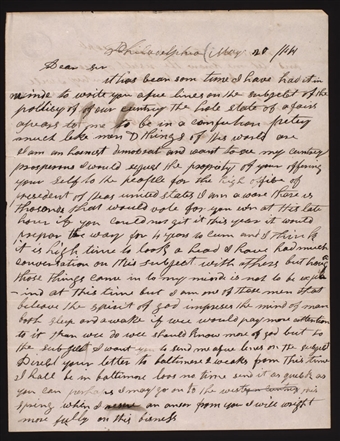 Philadelphia May 20 /44
Dear sir
it has bean som time I have had it in
minde to write you a fue lines on the subgect of the
politicy of of our cuntry the hole state of afairs
apears to me to be in a confusion pretty
much like men & things of the world are
I am an honest democrat and want to see my cuntery
prosperous I would sugest the propriety of your offering
your self to the people for the high office of
president of thes united states I am a ware there is
thosands that would vote for you eon at this late
hour if you could not git it this year it would
prepar the way for 4 years to cum and I think
it is high time to look a head I have had much
conversation on this subgect with others but having
those things come in to my mind is not to be
mind at this tim but I am one of those men that
beleave the spirit of god impreses the mind of man
both sleep and awake if wee would pay more attention
to it than wee do wee should know more of god but to
the subgect I want you to send me a fue lines on the subgect
Direct your letter to baltimore 2 weaks from this time
I shall be in baltimore loos no time send it as quick as
you can perhaps I may go on to the this
spring when I an anser from you I will wright
more fully on this bisness